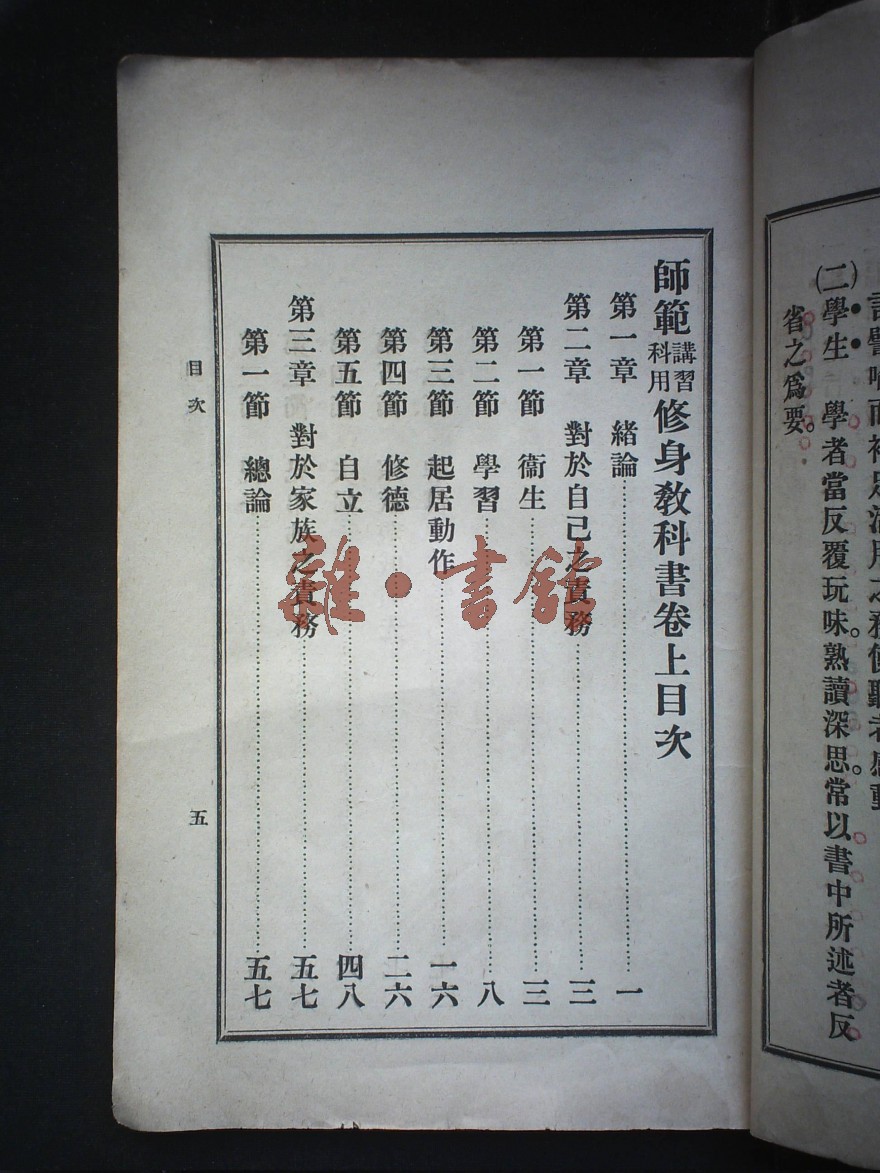 (二)學生　學者當反覆玩味。熟讀深思。常以書中所述者反
省之爲要。
師範講習科用修身教科書卷上目次
第一章　緒論…………一
第二章　對於自己之責務…………三
第一節　衞生…………三
第二節　學習…………八
第三節　起居動作…………一六
第四節　修德…………二六
第五節　自立…………四八
第三章　對於家族之責務…………五七
第一節　總論…………五七
目次　五
雜·書館